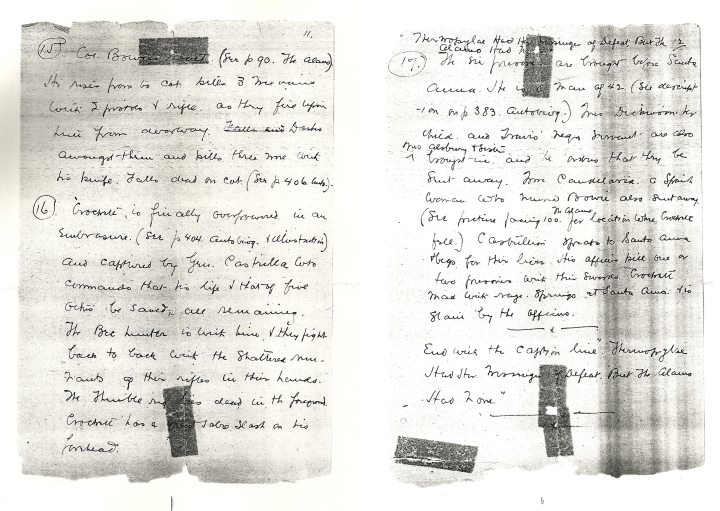 11.
(15) Col. Bowie (See p 90. The Alamo)
He rises from his cot. kills 3 Mexicans
with 2 pistols & rifle. as they fire upon
him from doorway. Falls and Dashes
amongst them and kills three more with
his knife. Falls dead on cot (See p 406 Auto).
(16) Crockett is finally overpowered in an
Embrasure. (See p 404. Autobiog. & illustration)
and captured by Gen. Castrillo who
commands that his life & that of five
others be saved, all remaining.
The Bee hunter is with him & they fight
back to back with the shattered rem-
nants of their rifles in their hands.
The Thimble rig is dead in the foreground
Crockett has a great sabre slash on his
forehead.
"Thermopylae Had Her Messenger of Defeat But The
Alamo Had None" 12
(17) The six prisoners are brought before Santa
Anna. He is a man of 42 (See descript
-ion on p 383. Autobiog.) Mrs Dickinson her
child. and Travis' negro servant are also
Mrs Alsbury & Sister
brought in. and he orders that they be
sent away. Mme Candelaria. a Spanish
woman who nursed Bowie also sent away
(See picture facing 100. The Alamo for location where Crockett
fell.) Castrillion speaks to Santa Anna
& begs for their lives. His officers kill one or
two prisoners with their swords Crockett
mad with rage. Springs at Santa Anna. & is
slain by the officers.
x
End with the caption line "Thermopylae
Had Her Messenger of Defeat. But The Alamo
Had None"